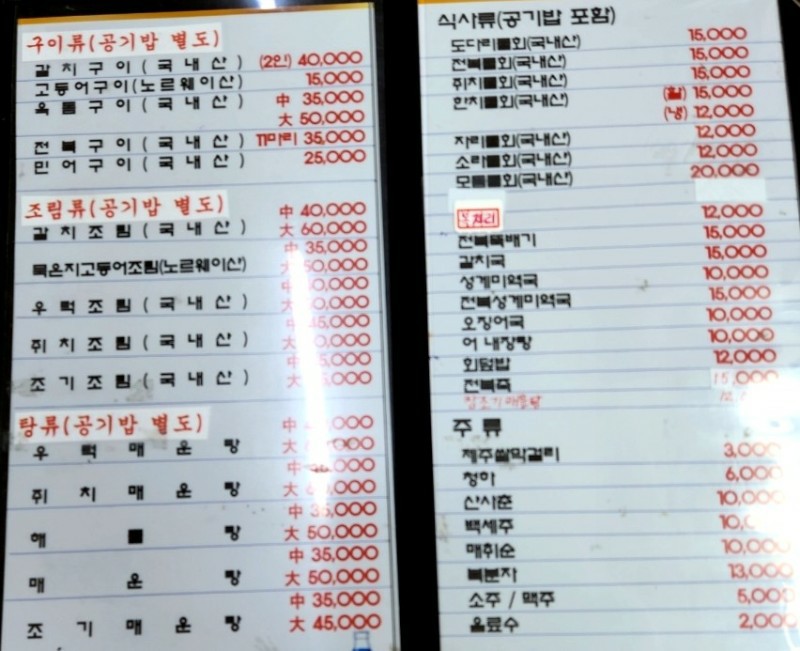 구이류(공기밥 별도)
갈치구이(국내산) (2인) 40,000
고등어구이(노르웨이산) 15,000
옥돔구이(국내산) 中 35,000
大 50,000
전복구이(국내산) 11마리 35,000
민어구이(국내산) 25,000
조림류(공기밥 별도)
中 40,000
갈치조림(국내산) 大 60,000
中 35,000
묵은지고등어조림(노르웨이산) 大 50,000
우럭조림(국내산)
쥐치조림(국내산)
조기조림(국내산)
탕류(공기밥 별도)
우럭매운탕
쥐치매운탕 大
中 35,000
해■탕 大 50,000
中 35,000
매운탕 大 50,000
中 35,000
조기매운탕 大 45,000
식사류(공기밥 포함)
도다리■회(국내산) 15,000
전복■회(국내산) 15,000
쥐치■회(국내산) 15,000
한치■회(국내산) (활) 15,000
(냉) 12,000
자리■회(국내산) 12,000
소라■회(국내산) 12,000
모듬■회(국내산) 20,000
12,000
전복뚝배기 15,000
갈치국 15,000
성게미역국 10,000
전복성게미역국 15,000
오징어국 10,000
어 내장탕 10,000
회덮밥 12,000
전복죽 15,000
주 류
제주쌀막걸리 3,000
청하 6,000
산사춘 10,000
백세주
매취순 10,000
복분자 13,000
소주 / 맥주 5,000
음료수 2,000